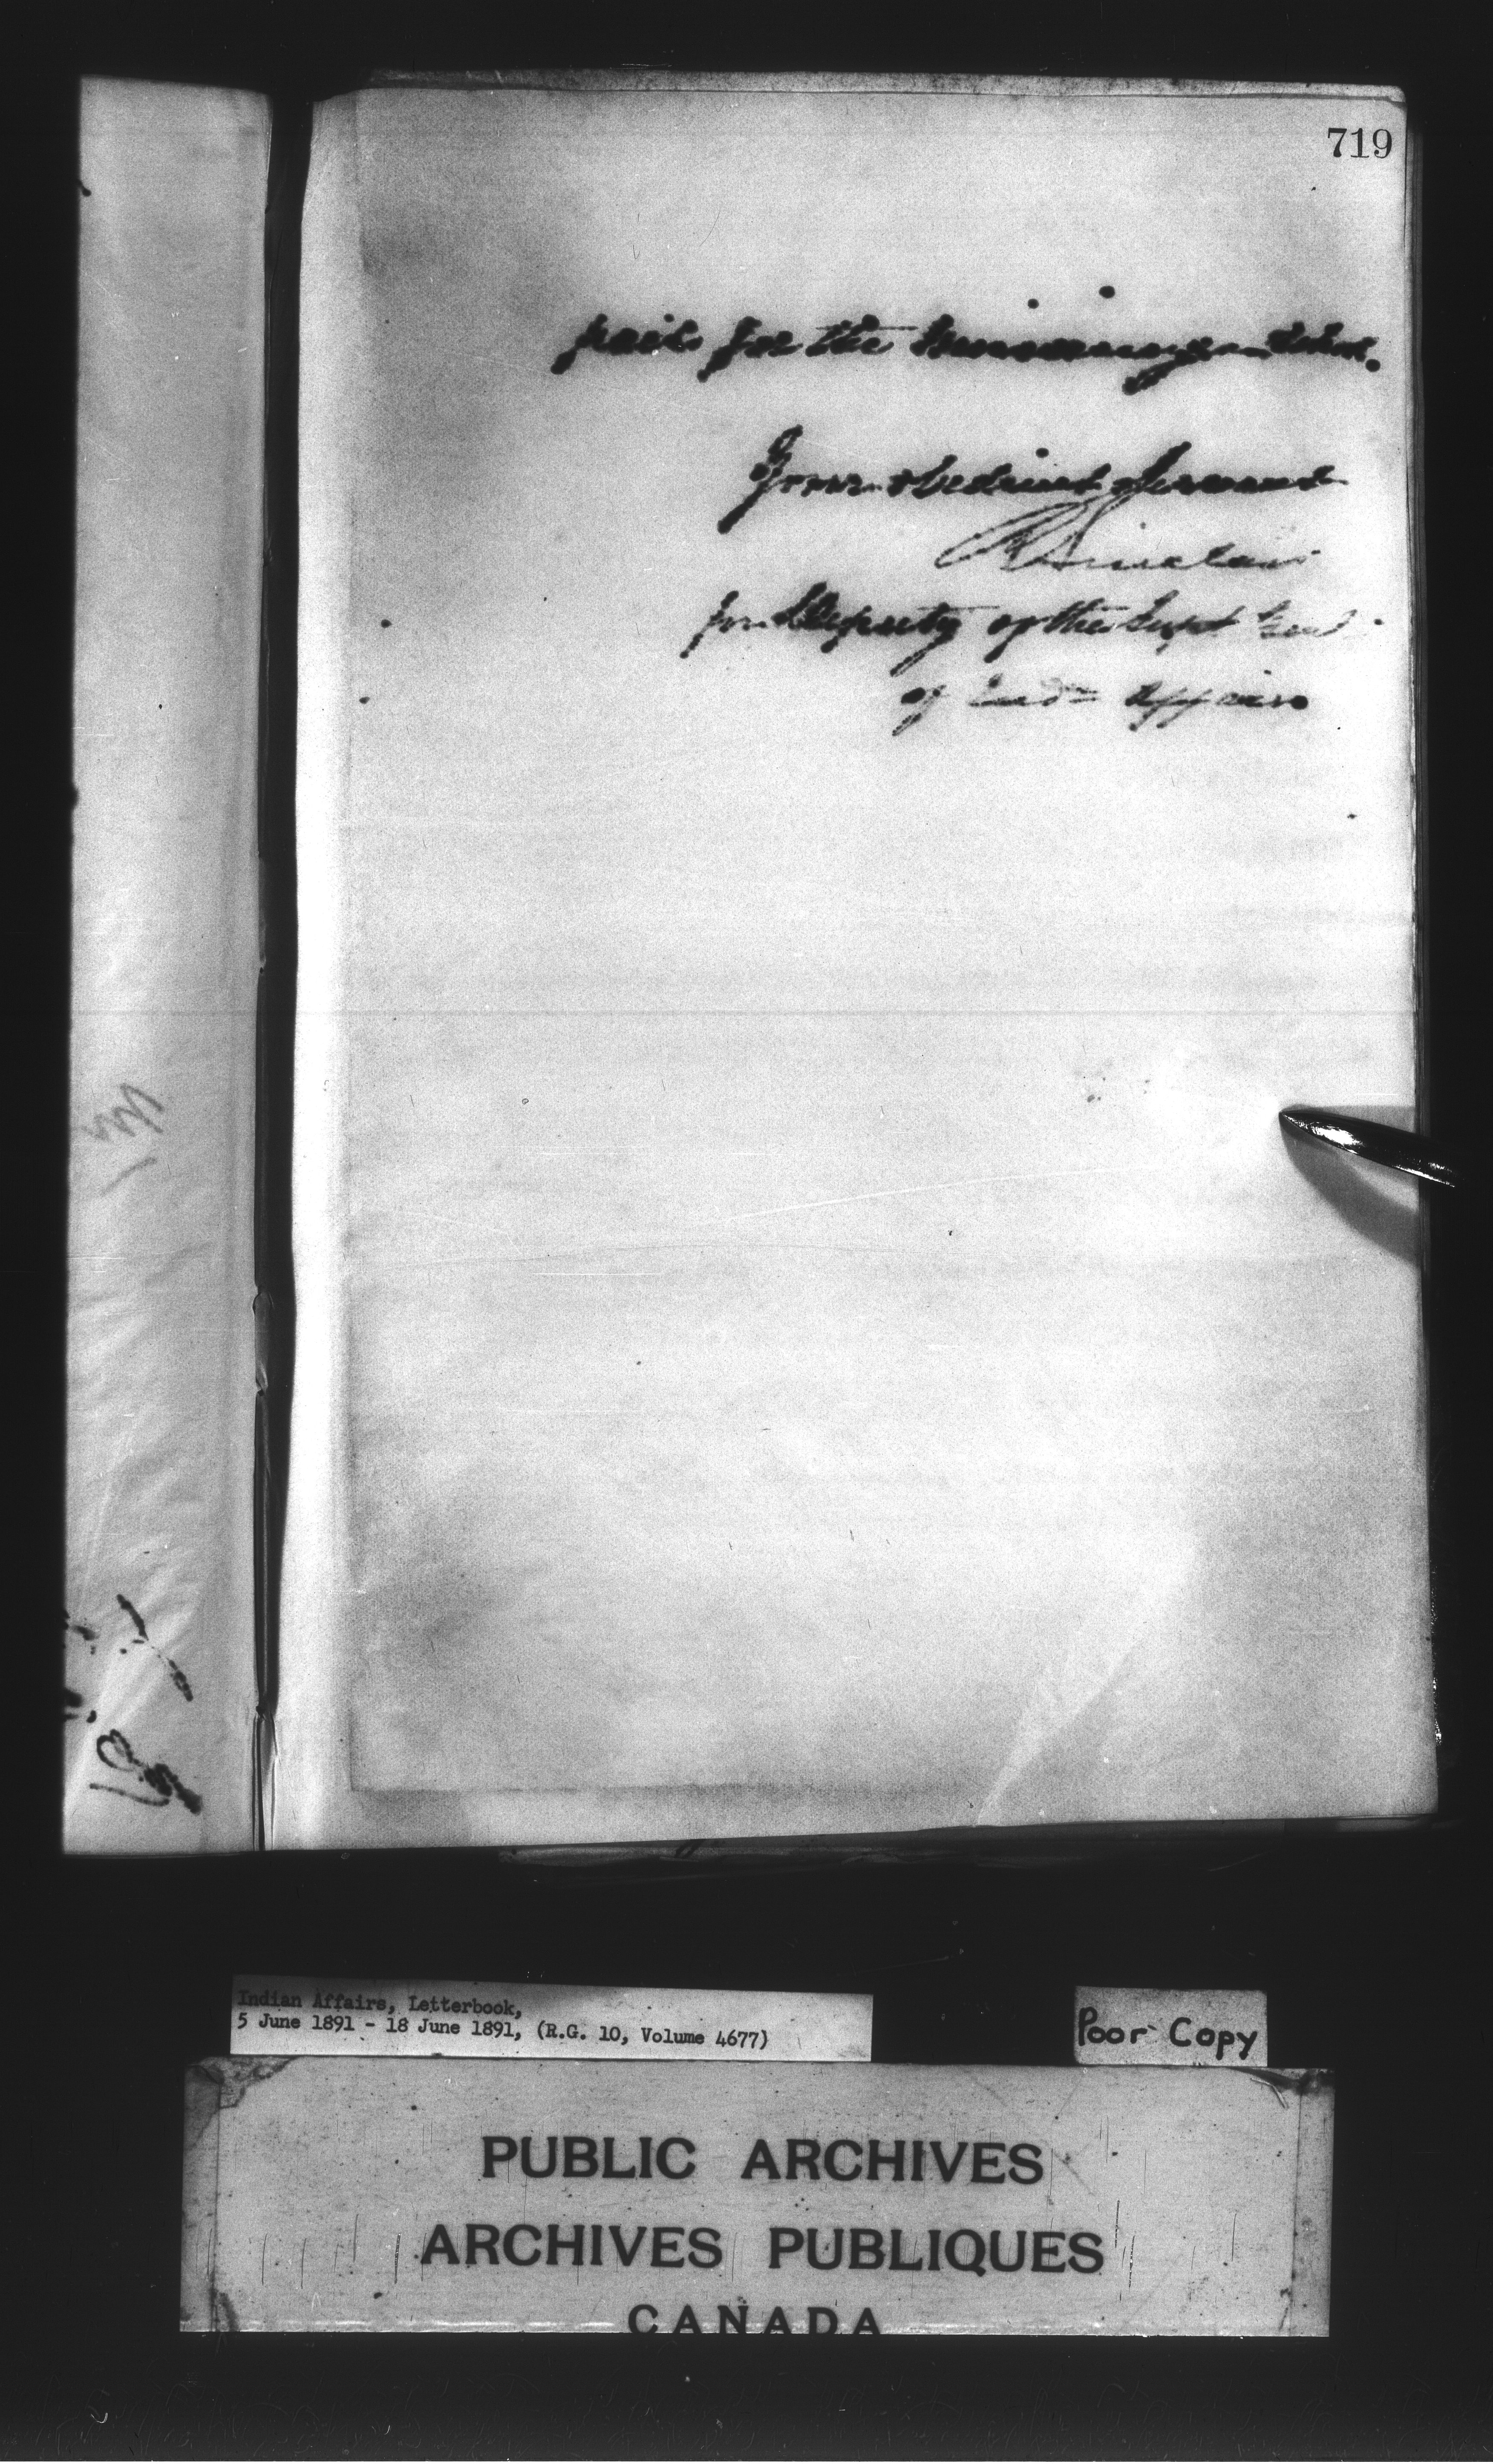 719
paid for the
Your obedient Servant
R Sinclair
for Deputy of the Supt Genl
of Indn Affairs
Indian Affairs, Letterbook,
5 June 1891 - 18 June 1891, (R.G. 10, Volume 4677)
Poor Copy
PUBLIC ARCHIVES
ARCHIVES PUBLIQUES
CANADA